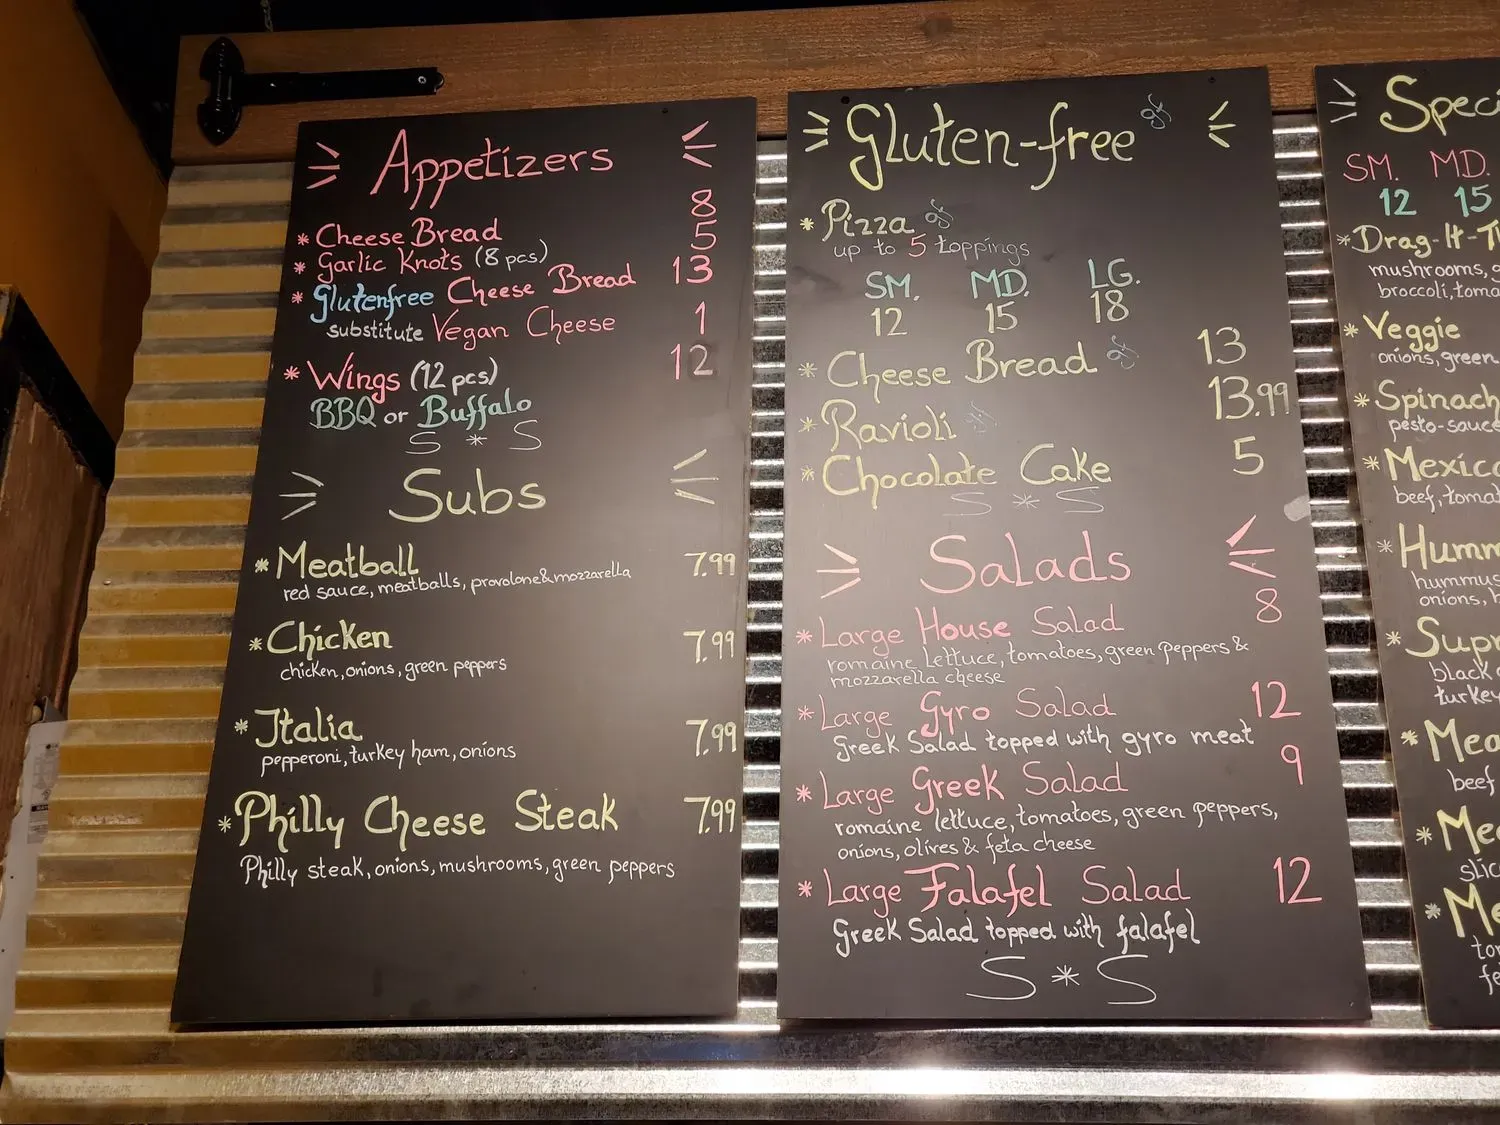 Appetizers
* Cheese Bread 8
* Garlic Knots (8 pcs) 5
* Glutenfree Cheese Bread 13
substitute Vegan Cheese 1
* Wings (12 pcs) 12
BBQ or Buffalo
S * S
Subs
* Meatball 7.99
red sauce, meatballs, provolone & mozzarella
* Chicken 7.99
chicken, onions, green peppers
* Italia 7.99
pepperoni, turkey ham, onions
* Philly Cheese Steak 7.99
Philly steak, onions, mushrooms, green peppers
Gluten-free gf
* Pizza gf
up to 5 toppings
SM. MD. LG.
12 15 18
* Cheese Bread gf 13
* Ravioli gf 13.99
* Chocolate Cake 5
S * S
Salads
* Large House Salad 8
romaine lettuce, tomatoes, green peppers &
mozzarella cheese
* Large Gyro Salad 12
Greek Salad topped with gyro meat
* Large Greek Salad 9
romaine lettuce, tomatoes, green peppers,
onions, olives & feta cheese
* Large Falafel Salad 12
Greek Salad topped with falafel
S * S
Speci
SM. MD.
12 15
* Drag-It-T
mushrooms,
broccoli, toma
* Veggie
onions, green
* Spinach
pesto-sauce
* Mexic
beef, tomat
* Humm
hummus
onions,
* Supr
black
turkey
* Mea
beef
* Mea
slic
* Me
to
fe